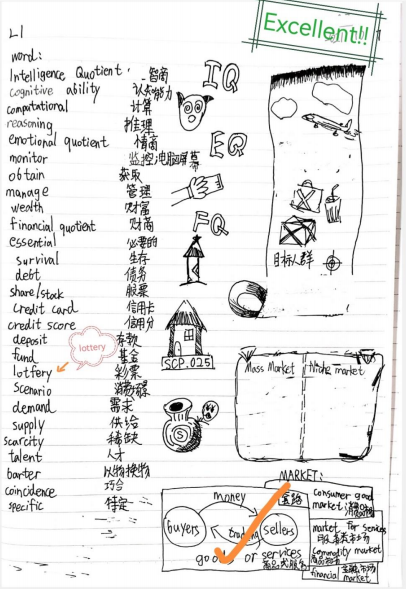 Excellent!!
L1
word:
Intelligence Quotient 智商
cognitive ability 认知能力
computational 计算
reasoning 推理
emotional quotient 情商
monitor 监控;电脑屏幕
obtain 获取
manage 管理
wealth 财富
financial quotient 财商
essential 必要的
survival 生存
debt 债务
share/stock 股票
credit card 信用卡
credit score 信用分
deposit 存款
fund 基金
lotfery 彩票
lottery
Scenario
demand 需求
supply 供给
scarcity 稀缺
talent 人才
barter 以物换物
coincidence 巧合
specific 特定
IQ
EQ
FQ
SCP.025
$
目标人群
Mass Market
Niche market
MARKET:
money
buyers
trading
sellers
or services
商品或服务
consumer good
market:
market for services
服务类市场
commodity market
financial 金融市场
market